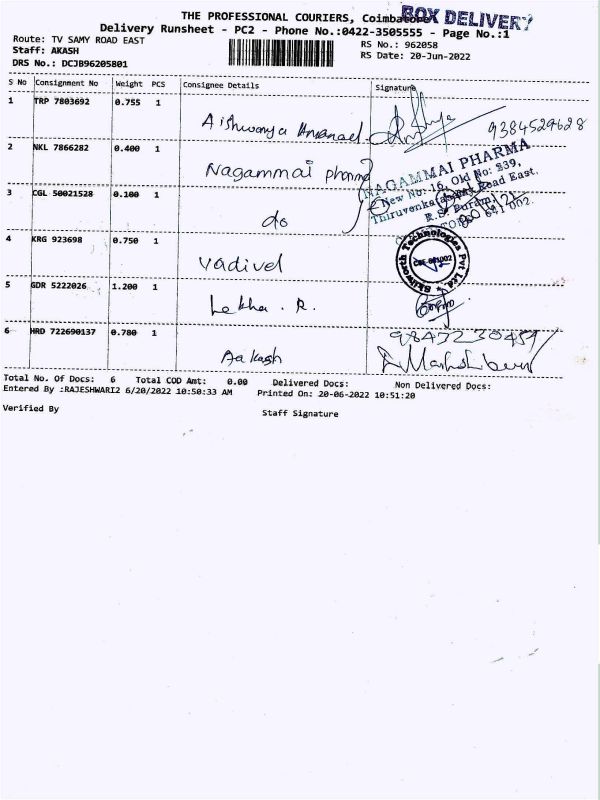 THE PROFESSIONAL COURIERS, Coimbatore
BOX DELIVERY
Delivery Runsheet - PC2 - Phone No.:0422-3505555 - Page No.:1
Route: TV SAMY ROAD EAST
RS No.: 962058
Staff: AKASH
RS Date: 20-Jun-2022
DRS No.: DCJB96205801
S No Consignment No Weight PCS Consignee Details Signature
1 TRP 7803692 0.755 1
Aishwarya
9384529628
2 NKL 7866282 0.400 1
Nagammai pharma
NAGAMMAI PHARMA
New No: 16, Old No: 239,
Thiruvenkatasamy Road East,
R.S. Puram,
641 002.
3 CGL 50021528 0.100 1
do
4 KRG 923698 0.750 1
Vadivel
Skilworth Technologies Pvt Ltd.
CBE-641002
5 GDR 5222026 1.200 1
Lekha. R.
6 HRD 722690137 0.780 1
Aakash
Total No. Of Docs: 6 Total COD Amt: 0.00 Delivered Docs: Non Delivered Docs:
Entered By :RAJESHWARI2 6/20/2022 10:50:33 AM Printed On: 20-06-2022 10:51:20
Verified By Staff Signature